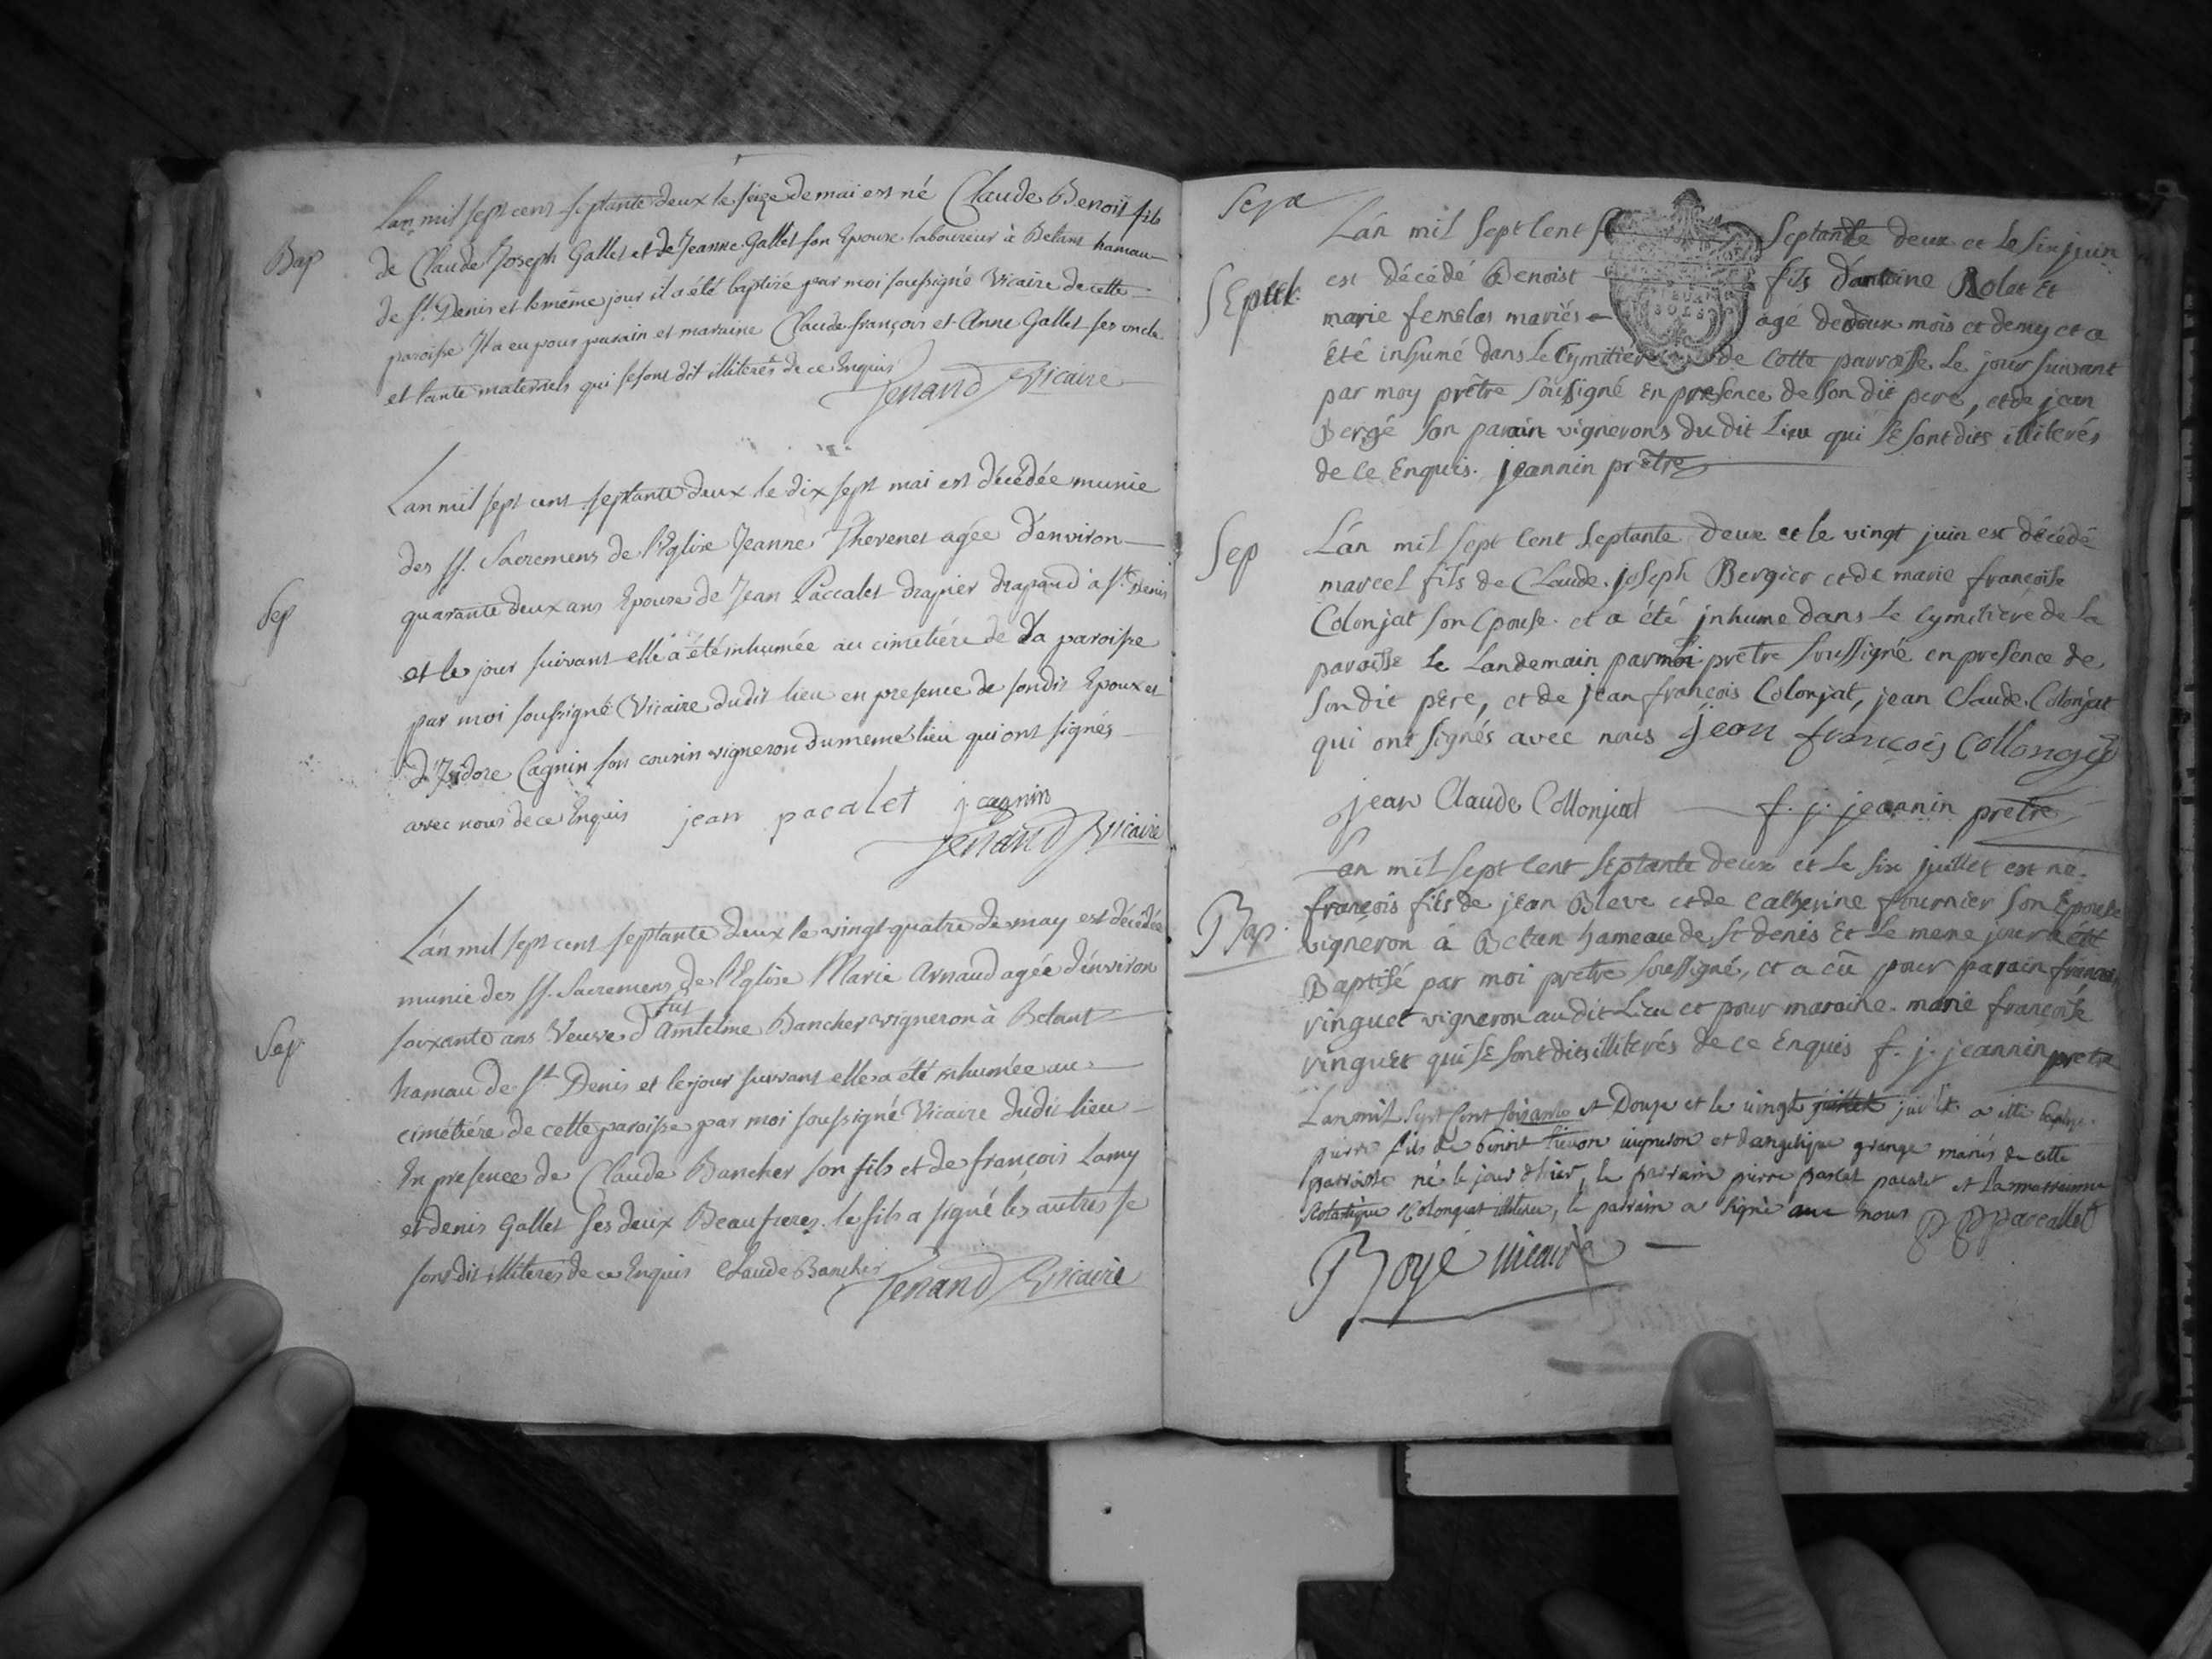 Bap
Lan mil sept cent septante deux le seize de mai est né Claude Benoit fils
de Claude Joseph Gallet et de Jeanne Gallet son Epouse laboureur à Betant hamau
de St. Denis et le même jour il a été baptisé par moi soussigné Vicaire de cette
paroisse Il a eu pour parain et maraine Claude françois et Anne Gallet ses oncle
et tante maternels qui se sont dit illiterés de ce Enquis
Jenand Vicaire
Sep
Lan mil sept cent septante deux le dix sept mai est décédée munie
des SS. Sacremens de l'Eglise Jeanne Thevenet agée d'environ
quarante deux ans Epouse de Jean Paccalet drapier drapand à St. Denis
et le jour suivant elle a été inhumée au cimetiére de la paroisse
par moi soussigné Vicaire dudit lieu en presence de sondit Epoux et
d'Isidore Cagnin son cousin vigneron du meme lieu qui ont signés
avec nous de ce Enquis jean pacalet j. cagnin
Jenand Vicaire
Sep.
Lan mil sept cent septante deux le vingt quatre de may est décédée
munie des SS. Sacremens de l'Eglise Marie Arnaud agée d'environ
soixante ans Veuve d' fut Antelme Bancher vigneron à Betant
hamau de St Denis et le jour suivant elle a été inhumée au
cimétiére de cette paroisse par moi soussigné Vicaire dudit lieu
En presence de Claude Bancher son fils et de françois Lamy
et denis Gallet ses deux Beaufreres. le fils a signé les autres se
sont dit illiteres de ce Enquis Claude Bancher
Jenand Vicaire
Sepu
Sepult.
Lán mil sept Cent septante deux et le six juin
est décédé Benoist fils d'antoine Rolet Et
marie femelas mariés agé de deux mois et demy et a
été inhumé dans le Cymitiére de Cette parroisse. Le jour suivant
par moy prêtre soussigné en presence de son dit pere, et de jean
Bergé son parain vignerons du dit Lieu qui se sont dits illiterés
de Ce Enquis. jeannin prêtre
Sep
Lán mil sept Cent septante deux et le vingt juin est décédé
marcel fils de Claude joseph Bergier et de marie françoise
Colonjat son Epouse. et a été jnhume dans le Cymitieré de la
paroisse le landemain par moi prêtre soussigné en presence de
son dit pere, et de jean françois Colonjat, jean Claude Colonjat
qui ont signés avec nous jean françois Collongeat
jean Claude Collonjat f. j. jeannin pretre
Bap.
Lan mil sept Cent septante deux et le six juillet est né.
françois fils de jean Bleve et de Catherine fournier son Epouse
vigneron à Betan hameau de St denis Et le meme jour a été
Baptisé par moi pretre soussigné, et a eû pour parain françois
vinguet vigneron au dit Lieu et pour maraine. marie françoise
vinguet qui se sont dits illiterés de ce Enquis f. j. jeannin pretre
Lan mil Sept Cent soixante et Douze et le vingt juillet a été baptisé
pierre fils de benoit vigneron et dangelique grange mariés de cette
parroisse né le jour d'hier, le parrain pierre pacalet et la marraine
Colongeat illiterée, le parrain a signé avec nous P P Paccallet
Boyé vicaire